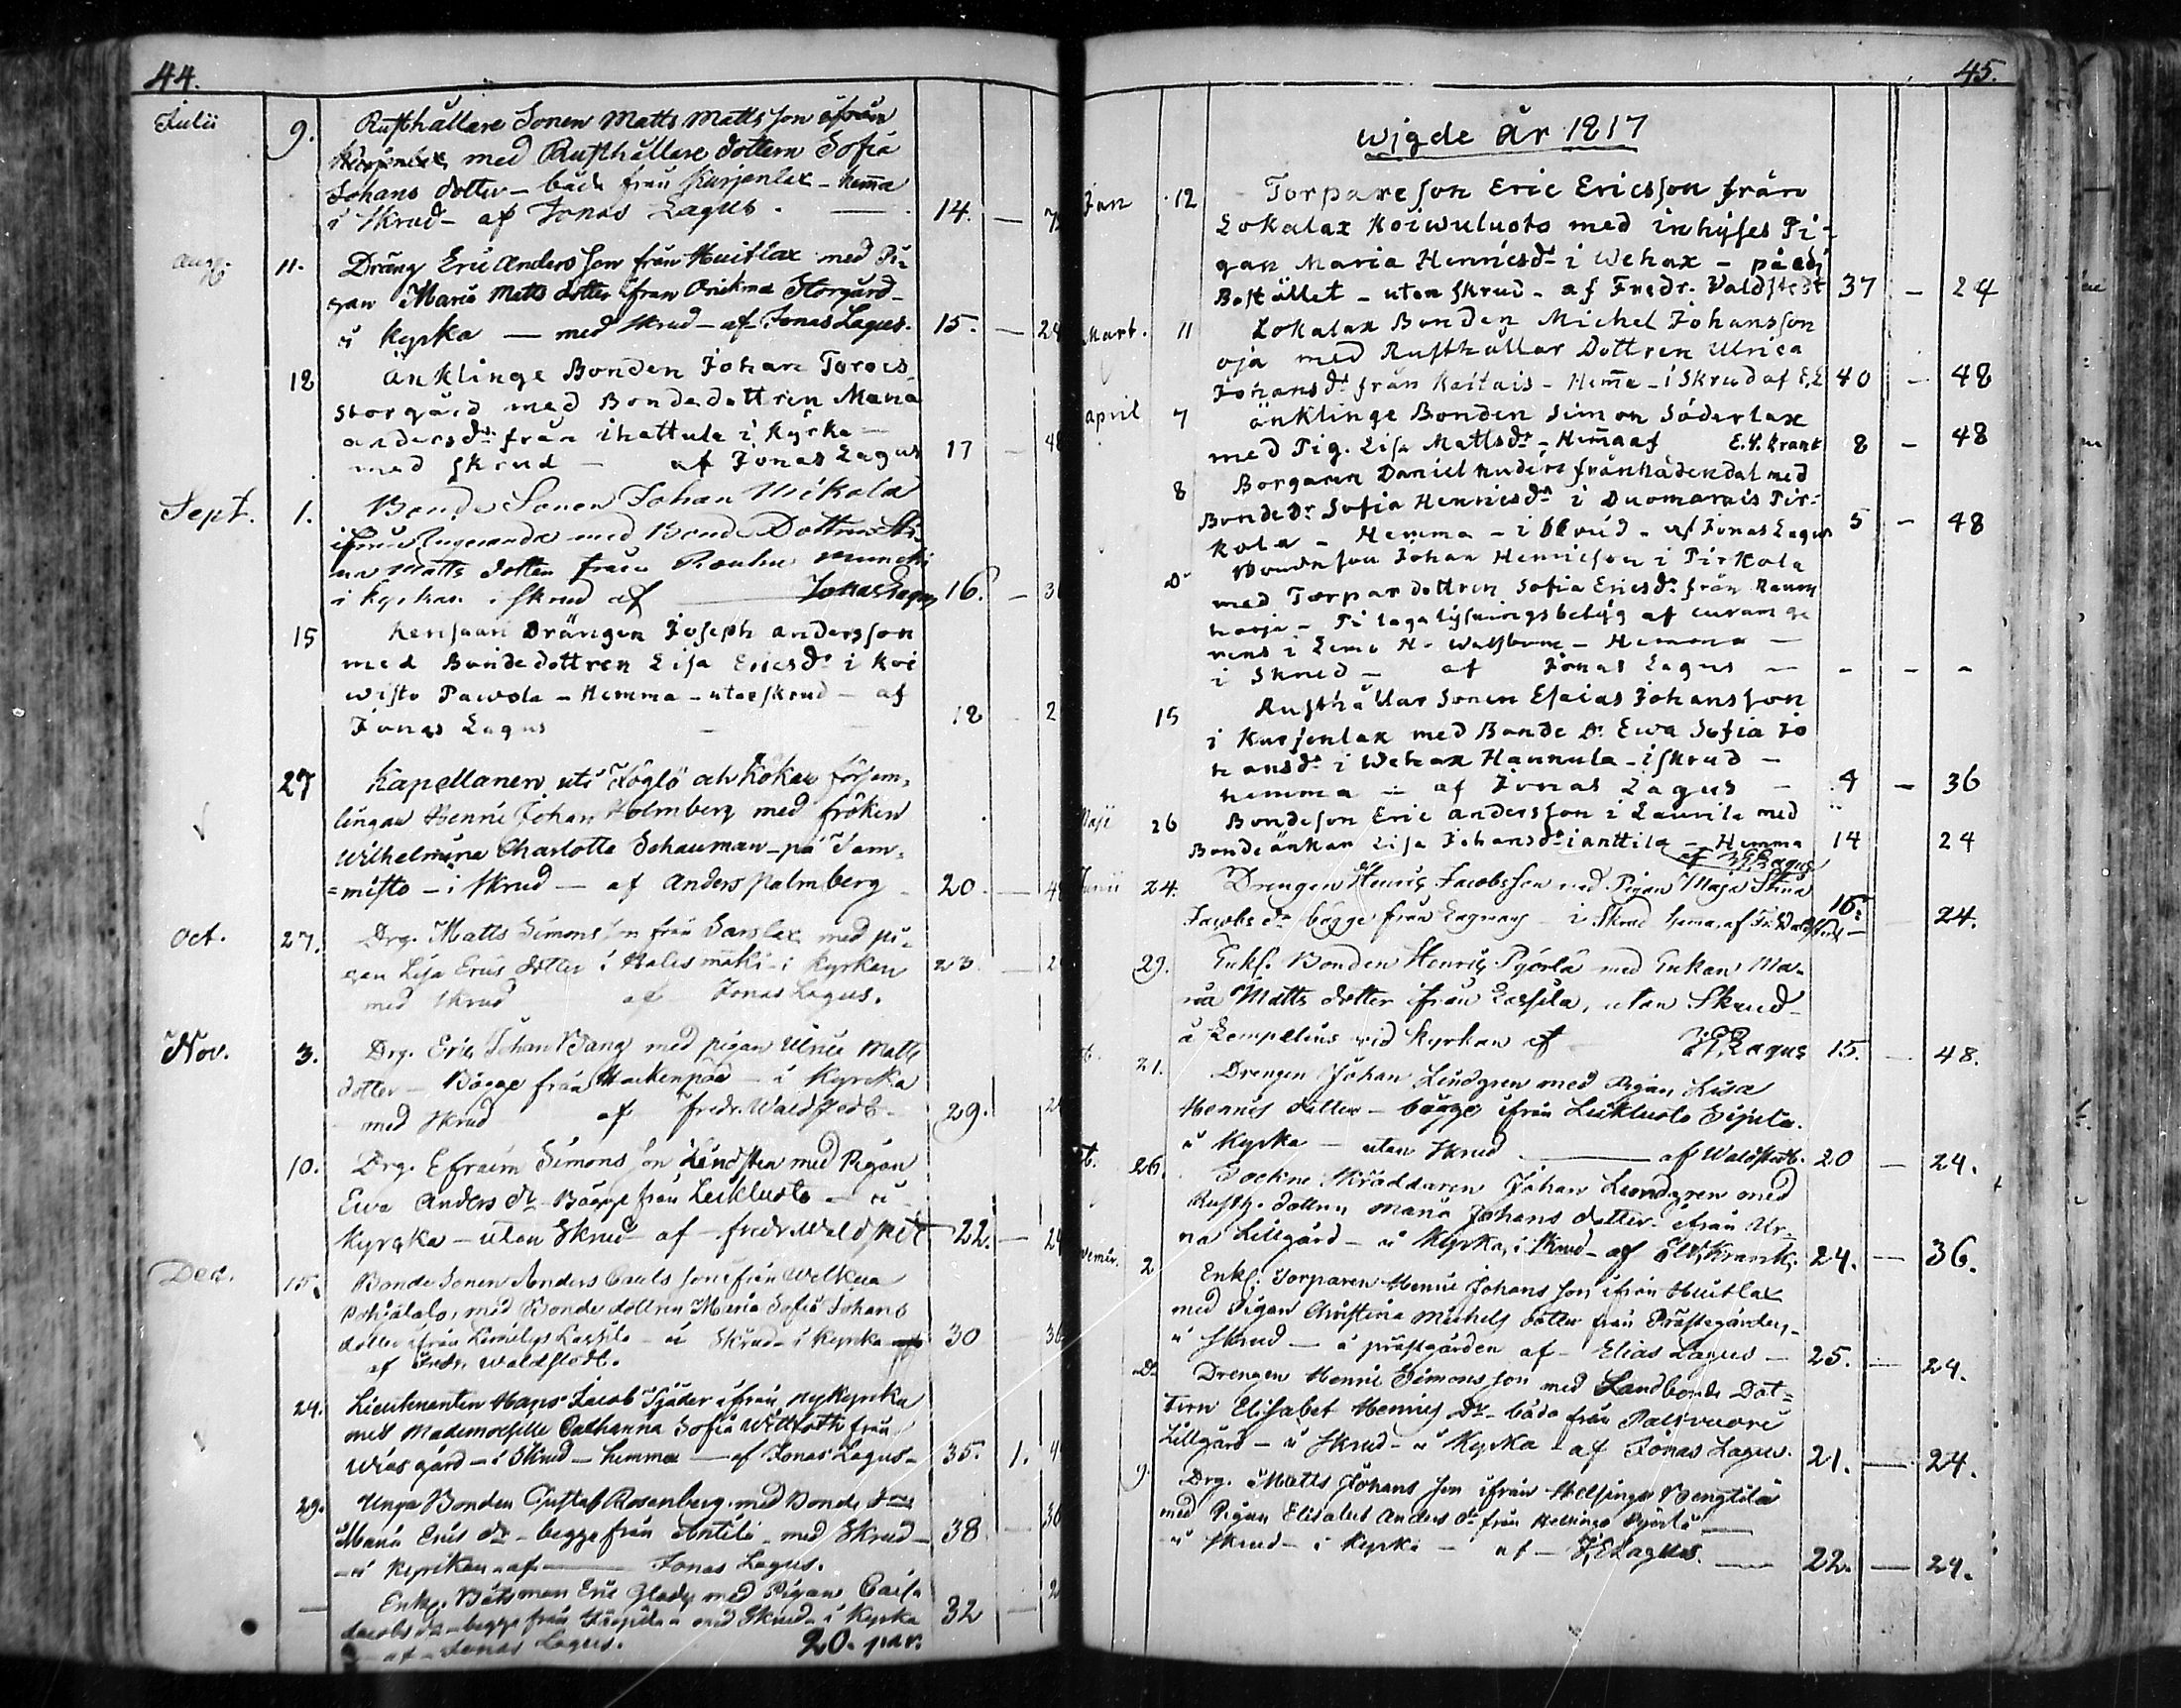 44.
Julii 9. Rusthållare Sonen Matts Mattsson ifrån
med Rusthållare dottern Sofia
Johans dotter - båda från Kurjenlax - hema
i Skrud - af Jonas Lagus. 14. —
Aug. 11. Dräng Eric Andersson från Huitlax med Pi-
gan Maria Matts dotter ifrån Storgård -
i Kyrka — med Skrud - af Jonas Lagus. 15. — 24
18 Änklinge Bonden Johan Torois
Storgård med Bondedottren Maria
andersdr från ihattula i Kyrka —
med Skrud — af Jonas Lagus 17 — 48
Sept. 1. Bonde Sonen Johan Nikola
ifrån med Bond Dottren Sti
na Matts dotter från Rauhu
i kyrkan i Skrud af — Jonas Lagus 16. —
15 Kensaari Drängen Joseph andersson
med Bondedottren Lisa Ericsdr i Koi
wisto Pawola - Hemma - utan skrud - af
Jonas Lagus 18 - 2
27 Kapellanen uti Föglö och Kökar försam-
lingar Henric Johan Holmberg med fröken
Wilhelmina Charlotta Schauman - på Tam-
=misto - i Skrud — af Anders palmberg 20. —
Oct. 27. Drg. Matts Simonsson från Sarslax med pi-
gan Lisa Erics dotter i Kalismäki - i Kyrkan 23. — 2
med Skrud af Jonas Lagus.
Nov. 3. Drg. Eric Johan Wang med pigan Ulrica Matts
dotter - Bägge från Hackenpää - i Kyrka
med Skrud af fredr. Waldstedt. 29. 2
10. Drg. Efraim Simonsson Lindsten med Pigan
Ewa Anders dr - Bägge från Leikluoto — i
Kyrka - utan Skrud - af fredr. Waldstedt 22. — 24
Dec. 15. Bonde Sonen Anders Carlsson ifrån Welkua
med Bonde dottren Maria Sofia Johans
dotter ifrån Lassila - i Skrud - i Kyrka 30 36
af Fredr. Waldstedt.
24. Lieutnanten Hans Jacob Tjäder ifrån nykyrka
med Mademoiselle Catharina Sofia Wittfooth från
Wias gård - i Skrud - hemma — af Jonas Lagus - 35. 1. 4
29. Unga Bonden Gustaf Rosenberg med Bonde dotter
Maria Erics dr - begge från Antila - med Skrud - 38 — 36
- i kyrkan - af — Jonas Lagus.
— Enkl. Båtsman Eric Glady med Pigan Caisa
Jacobs dr - begge från med Skrud - i Kyrka 32 — 2
- af - Jonas Lagus. 20. par.
45.
wigde år 1817
Jan 12 Torpareson Eric Ericsson från
Lokalax Koiwuluoto med inhyses Pi-
gan Maria Henricsdr i Wehax - på adj
Bostället - utan skrud - af Fredr. Waldstedt 37 — 24
Mart. 11 Lokalax Bonden Michel Johansson
oja med Rusthållar Dottren Ulrica
Johansdr från Kaitais - Hema - i Skrud af E,L 40 — 48
april 7 änklinge Bonden Simon Söderlax
med Pig. Lisa Mattsdr - Hema af E.W. Krank 8 — 48
8 Borgaren Daniel från Nådendal med
Bonde Dr Sofia Henricsdr i Duomarais Pir-
kola - Hemma - i Skrud - af Jonas Lagus 5 — 48
Do Bondeson Johan Henricson i Pirkola
med Torpar dottren Sofia Ericsdr från Raum
- Pi laga lysningsbetyg af curam ge
rens i Lemo H. Walsborg - Hemma —
i Skrud — af Jonas Lagus — - - -
15 Rusthållar Sonen Esaias Johansson
i Kurjenlax med Bonde Dr Ewa Sofia Jo
hansdr i Wehax Hannula - i skrud —
hemma — af Jonas Lagus — 4 — 36
Maji 26 Bondeson Eric andersson i Laurila med
Bondeänkan Lisa Johansdr i anttila — Hemma 14 24
af J.E. Lagus
Junii 24. Drengen Henric Jacobsson med Pigan Maja Stina
Jacobs dr bägge från - i Skrud hemma af Fr. Waldstedt 16. — 24.
29. Enkl. Bonden Henric Pyörlä med Enkan Ma-
ria Matts dotter ifrån Lassila, utan Skrud -
å Lempelius vid Kyrkan af J.E. Lagus 15. — 48.
21. Drengen Johan Lindgren med Pigan Lisa
Henrics dotter - bägge ifrån Leikluoto Eipila.
i Kyrka — utan Skrud — af Waldstedt. 20 — 24.
26. Sockne Skräddaren Johan Lundgren med
Rusth. dottren Maria Johans dotter - ifrån Ur-
na Lillgård - i Kyrka, i Skrud - af E.W. Krank. 24. — 36.
2 Enkl. Torparen Henric Johansson ifrån Huitlax
med Pigan Christina Michels dotter från Prästegården, -
i Skrud — å prästgården af - Elias Lagus — 25. — 24.
Do Drengen Henric Simonsson med Landbonde Dot=
tern Elisabet Henrics Dr - båda från Palsvuori
Lillgård - i Skrud - i Kyrka - af Jonas Lagus. 21. — 24.
9. Drg. Matts Johansson ifrån Helsinge Bengtila
med Pigan Elisabet Anders dr från Helsinge Pyörlä —
i Skrud - i Kyrka — af - J.E Lagus. — 22. — 24.